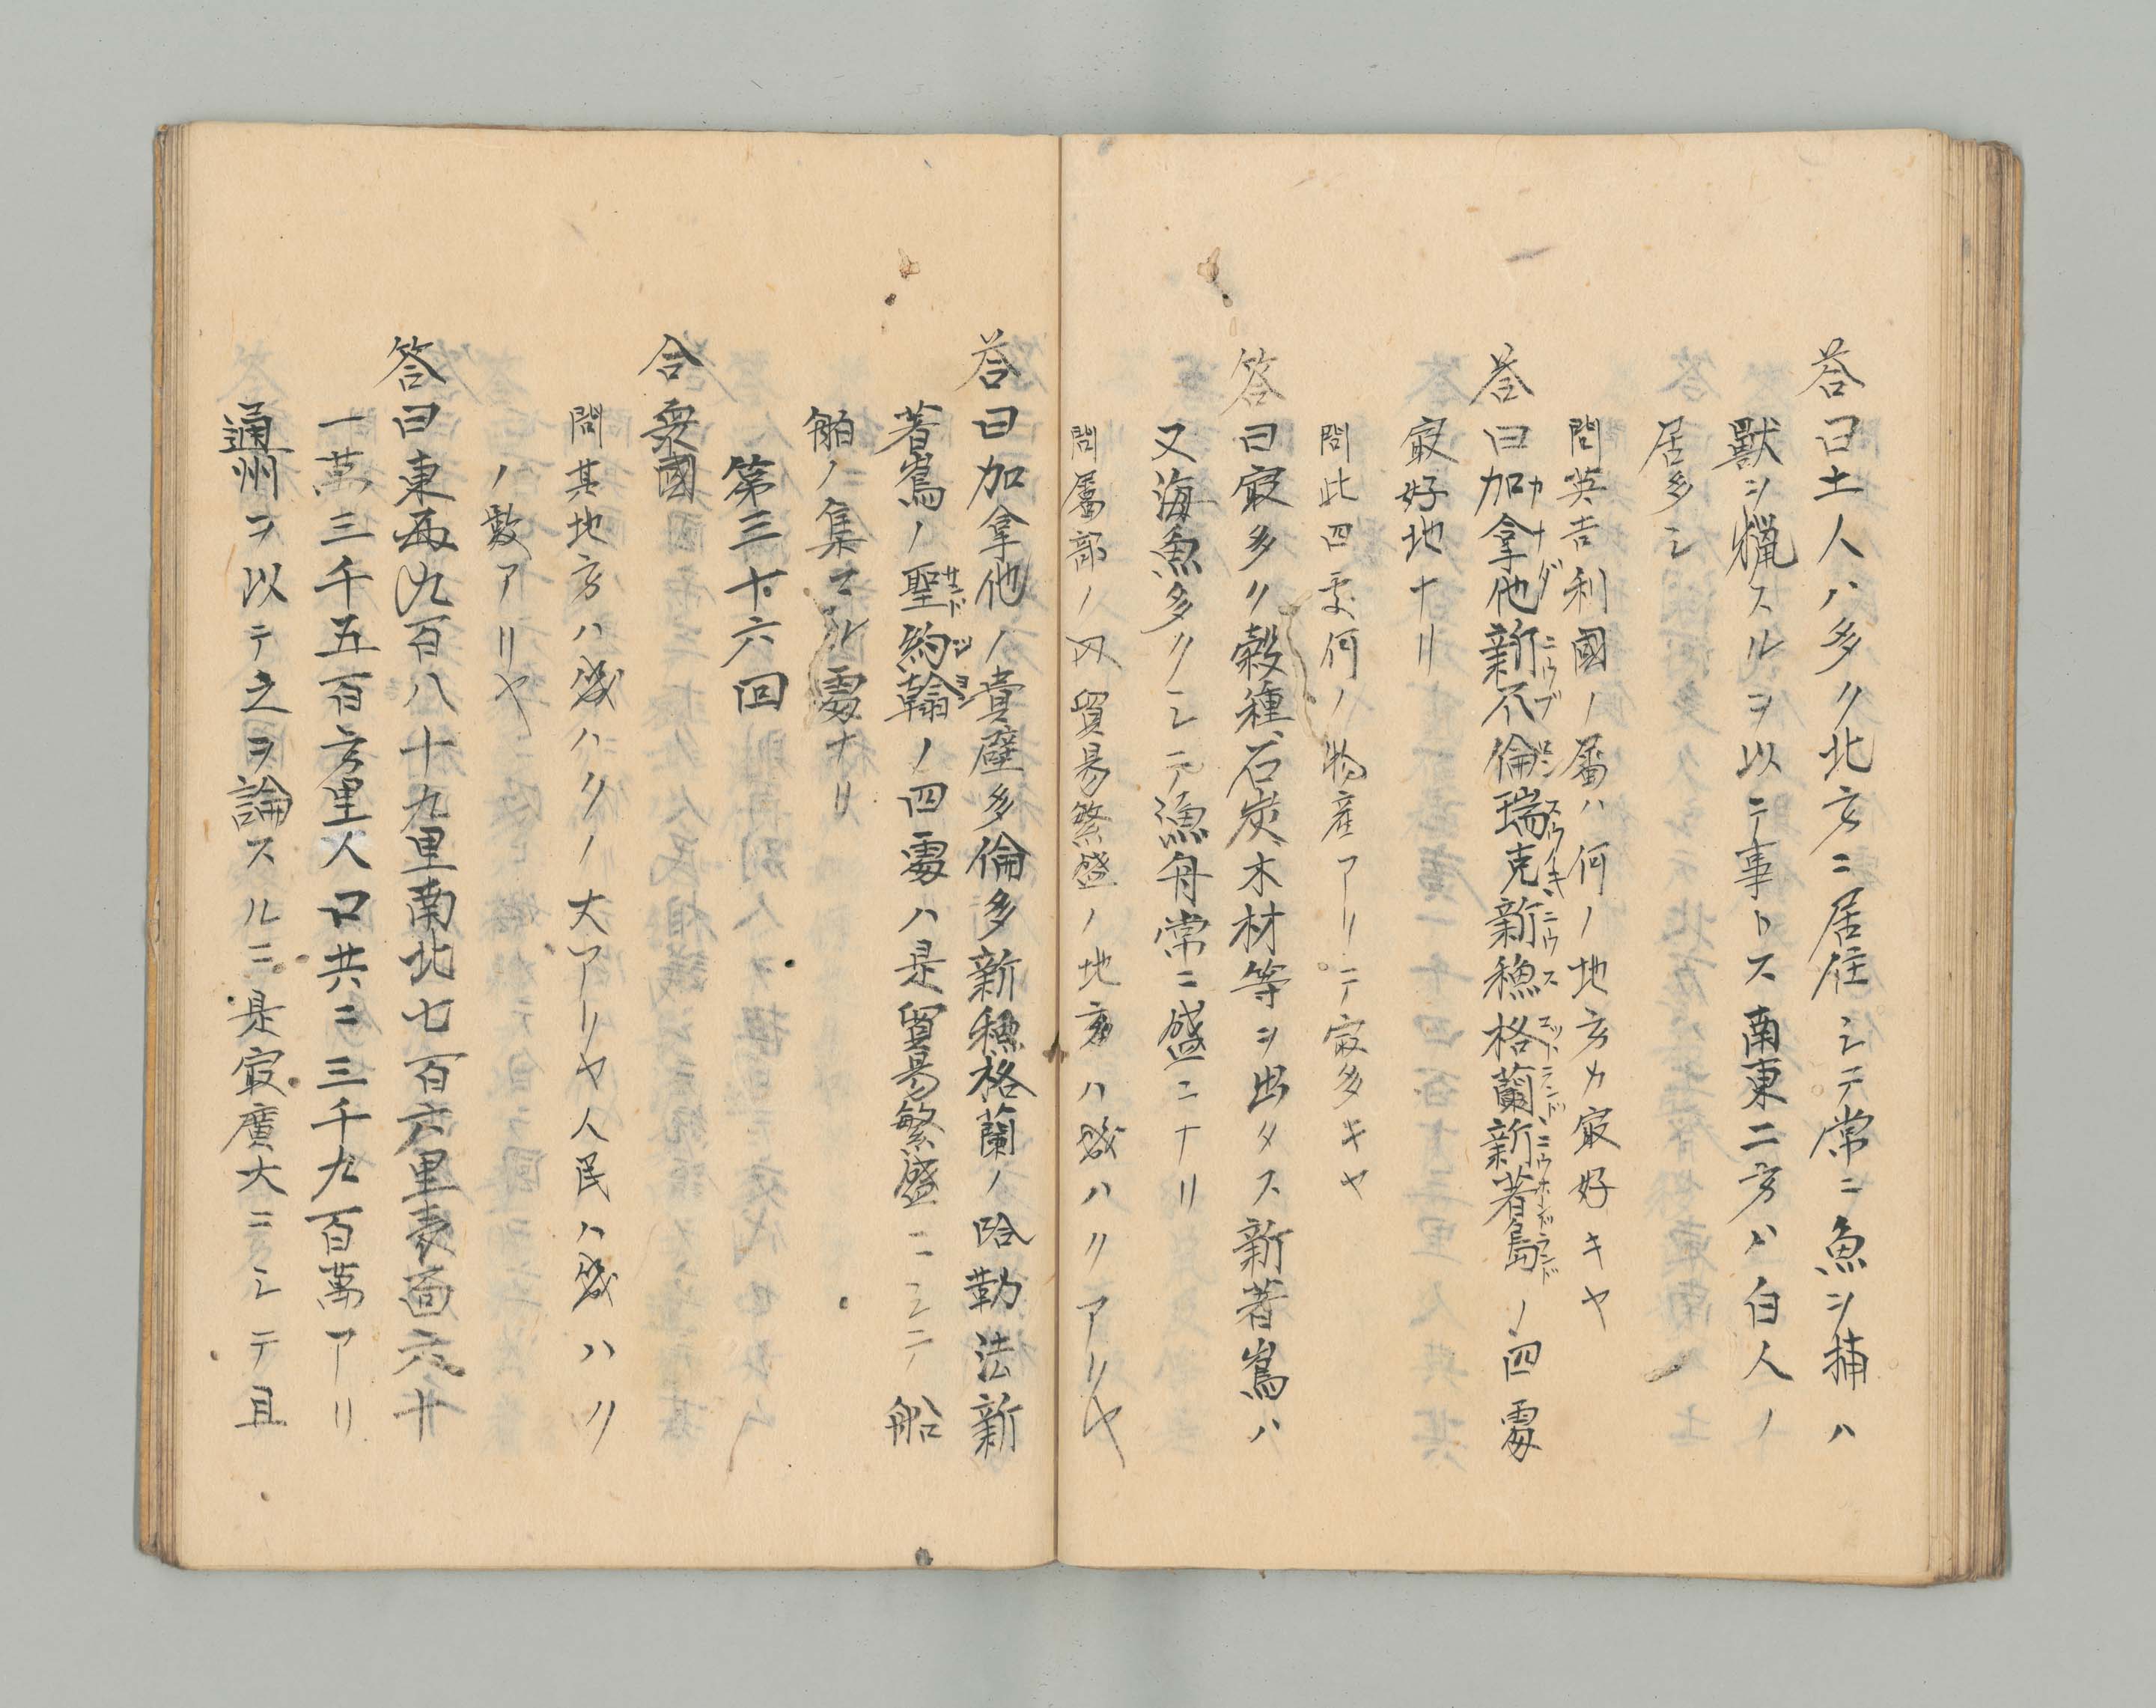 荅曰土人ハ多ク北方ニ居住シテ常ニ魚ヲ捕ハ
獸ヲ猟スルヲ以テ事トス南東二方ハ白人ノ
居多シ
問英吉利國ノ屬ハ何ノ地方カ㝡好キヤ
荅曰加拿他新不倫瑞克新穏格蘭新著島ノ四䖏
㝡好地ナリ
問此四䖏何ノ物産アリテ㝡多キヤ
答曰㝡多ク穀種石炭木材等ヲ出タス新著嶌ハ
又海魚多クシテ漁舟常ニ盛ニナリ
問屬部ノ内貿易繁盛ノ地方ハ幾ハクアリヤ
荅曰加拿他ノ貴壁多倫多新穏格蘭ノ哈勒法新
著嶌ノ聖約翰ノ四䖏ハ是貿易繁盛ニシテ船
舶ノ集マル䖏ナリ
第三十六回
合衆國
問其地方ハ幾ハクノ大アリヤ人民ハ幾ハク
ノ數アリヤ
答曰東西九百八十九里南北七百六里表面六十
一萬三千五百方里人口共ニ三千九百萬アリ
通州ヲ以テ之ヲ論スルニ是㝡廣大ニシテ且